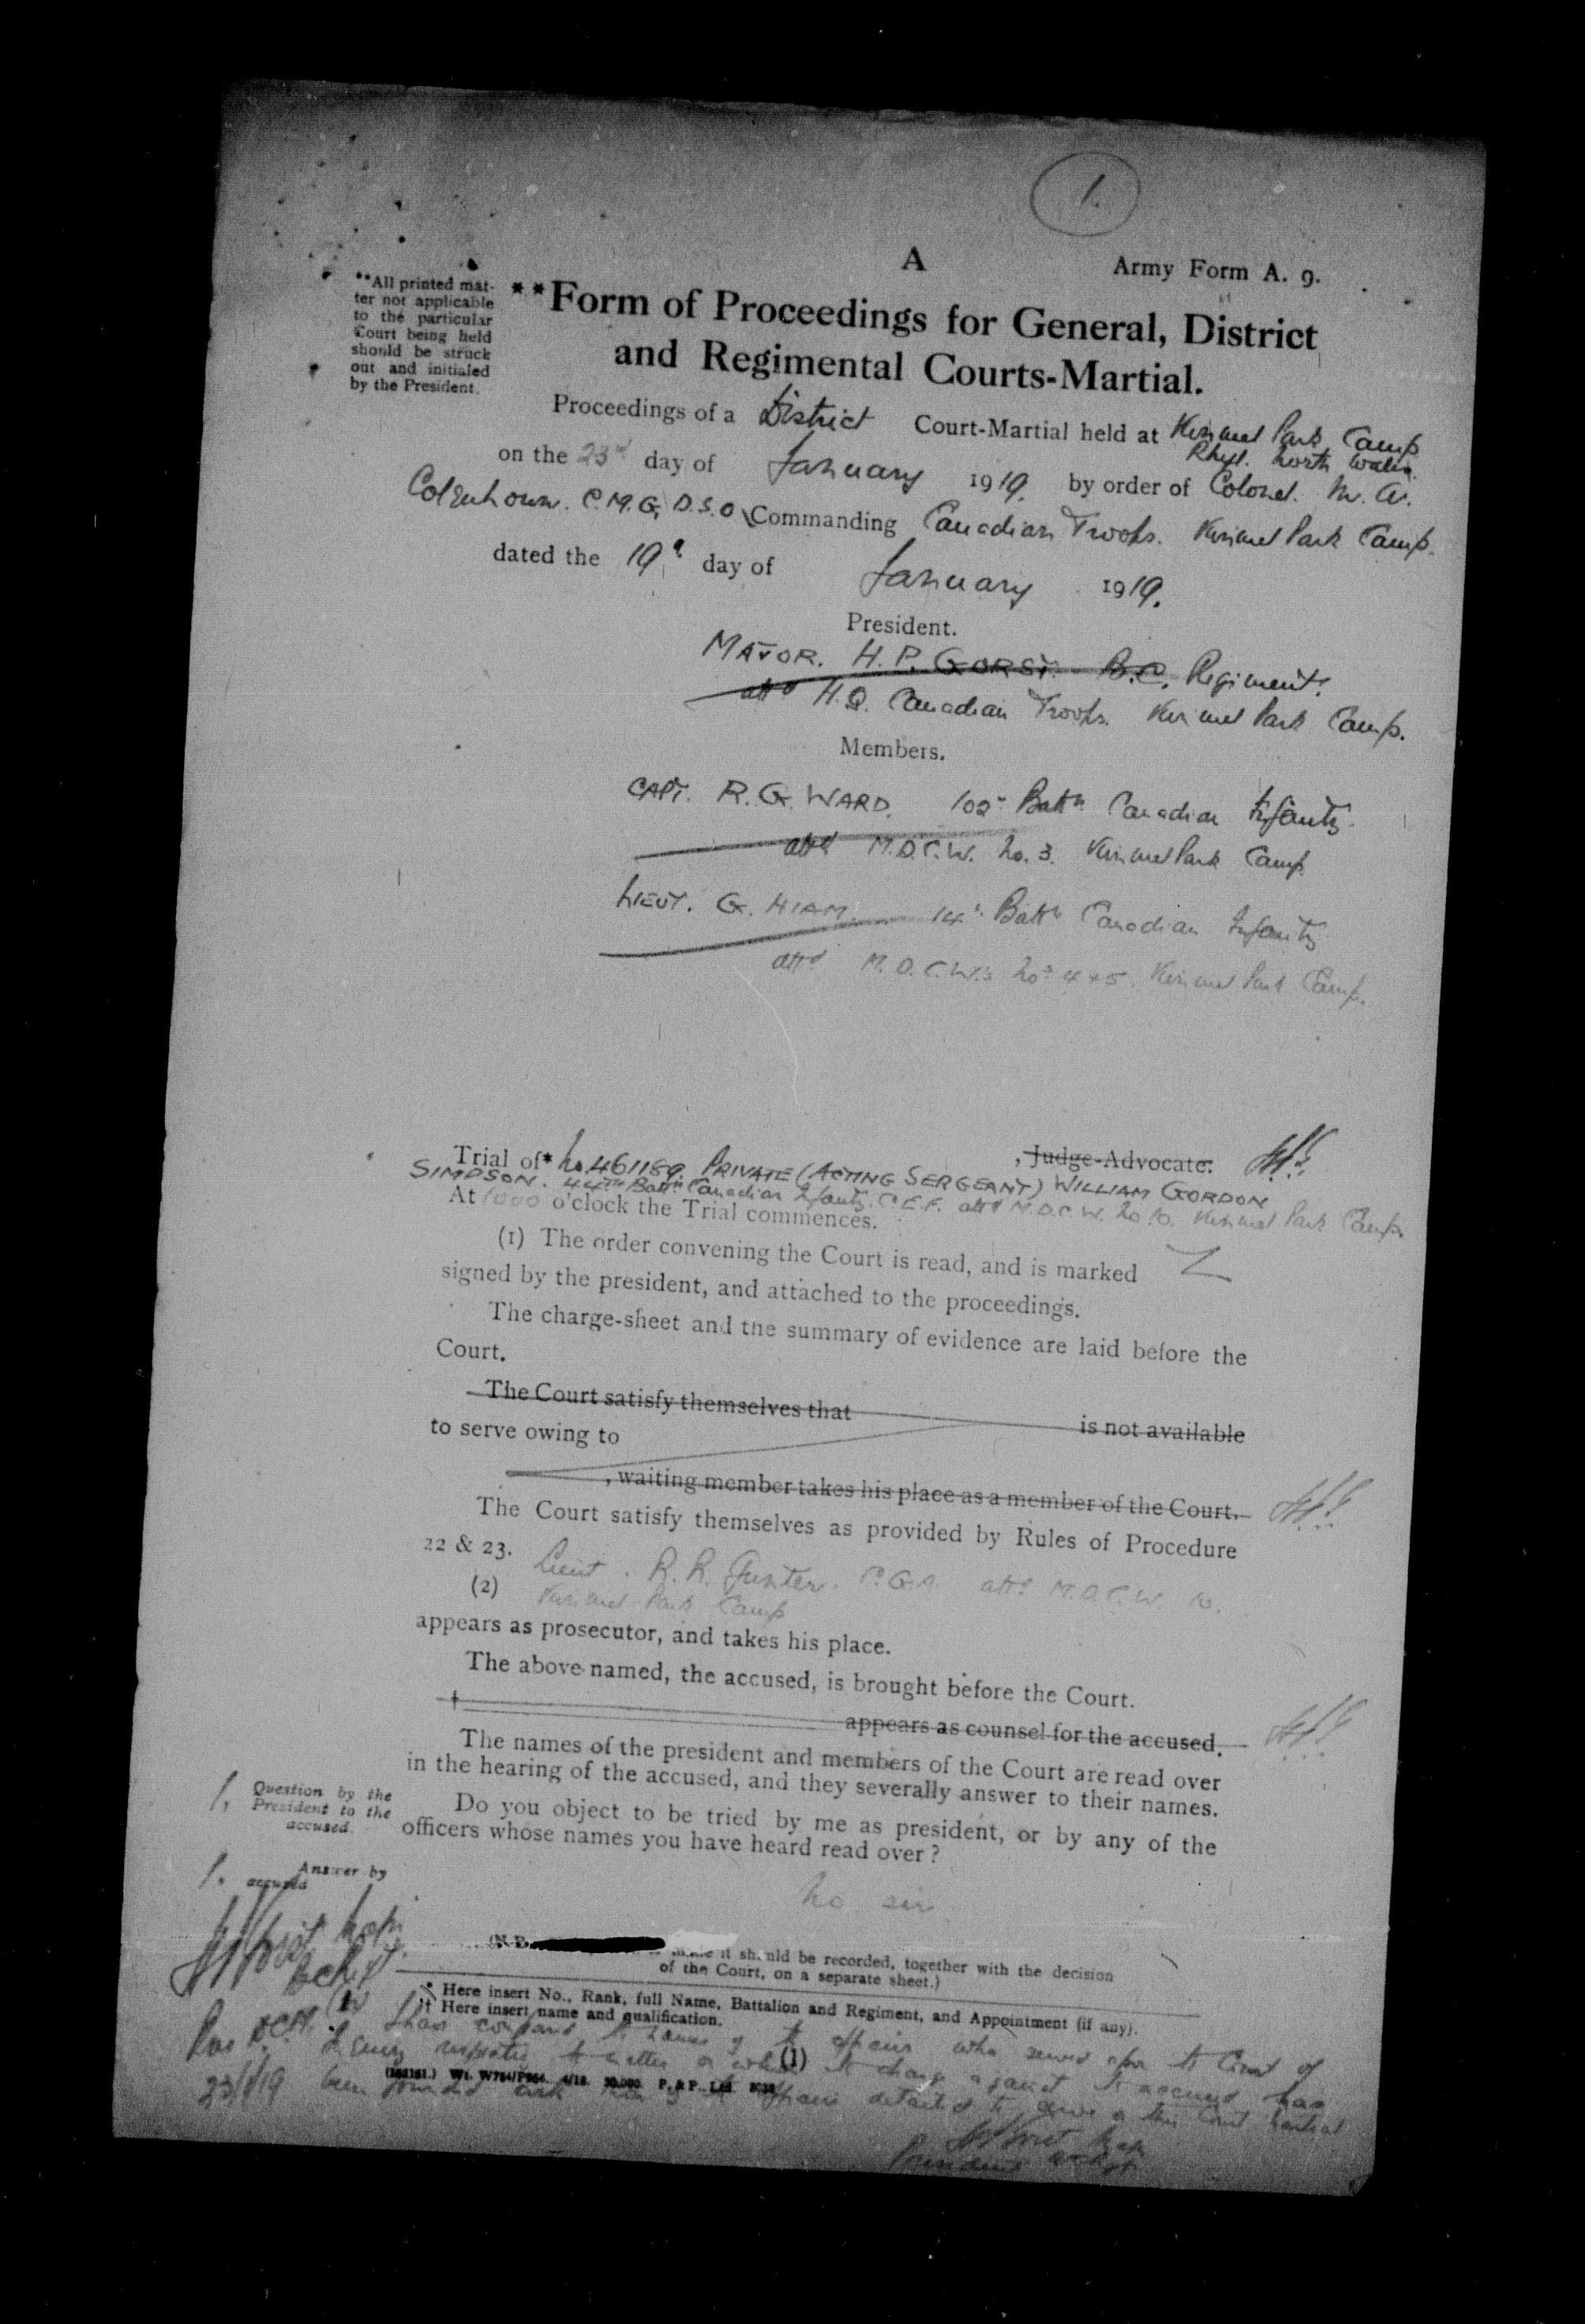 1.
A
Army Form A. 9.
**All printed mat-
ter not applicable
to the particular
Court being held
should be struck
out and initialed
by the President.
**Form of Proceedings for General, District
and Regimental Courts-Martial.
Proceedings of a District Court-Martial held at Kinmel Park Camp
Rhyl. North Wales.
on the 23rd day of January 1919. by order of Colonel. M. A.
Colquhoun. C.M.G, D.S.O Commanding Canadian Troops. Kinmel Park Camp.
dated the 19th day of January 1919.
President.
MAJOR. H. P. GORST. B.C. Regiment.
attd H.Q. Canadian Troops. Kinmel Park Camp.
Members.
CAPT. R. G. WARD. 102nd Battn Canadian Infantry.
attd M.D.C.W. No. 3. Kinmel Park Camp
LIEUT. G. HIAM. 14th Battn Canadian Infantry
attd M.D.C.W.s Nos 4 & 5. Kinmel Park Camp.
, Judge-Advocate.
Trial of* No. 461189. PRIVATE (ACTING SERGEANT) WILLIAM GORDON
SIMPSON. 44th Battn Canadian Infantry. C.E.F. attd M.D.C.W. No 10. Kinmel Park Camp.
At 1000 o'clock the Trial commences.
(1) The order convening the Court is read, and is marked
signed by the president, and attached to the proceedings.
The charge-sheet and the summary of evidence are laid before the
Court.
The Court satisfy themselves that is not available
to serve owing to
, waiting member takes his place as a member of the Court.
The Court satisfy themselves as provided by Rules of Procedure
22 & 23.
(2) Lieut. R. R. Gunter. C.G.A. attd M.D.C.W. 10.
Kinmel Park Camp
appears as prosecutor, and takes his place.
The above-named, the accused, is brought before the Court.
† appears as counsel for the accused.
The names of the president and members of the Court are read over
in the hearing of the accused, and they severally answer to their names.
1. Question by the
President to the
accused.
Do you object to be tried by me as president, or by any of the
officers whose names you have heard read over?
1. Answer by
accused
No sir
(N.B. it should be recorded, together with the decision
of the Court, on a separate sheet.)
* Here insert No., Rank, full Name, Battalion and Regiment, and Appointment (if any).
† Here insert name and qualification.
I have compared the names of the officers who served upon the Court of
Enquiry respecting the matter on which the charge against the accused has
(1)
23/1/19 been founded with the officers detailed to serve on this Court Martial
President